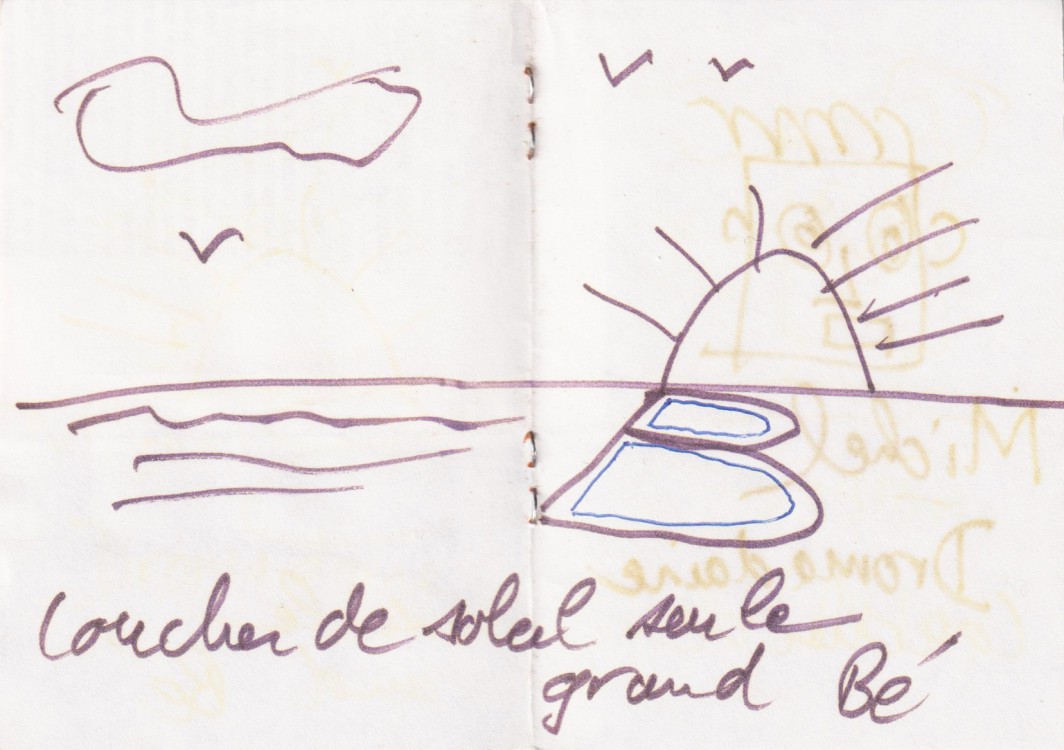 Coucher de soleil sur le
grand Bé